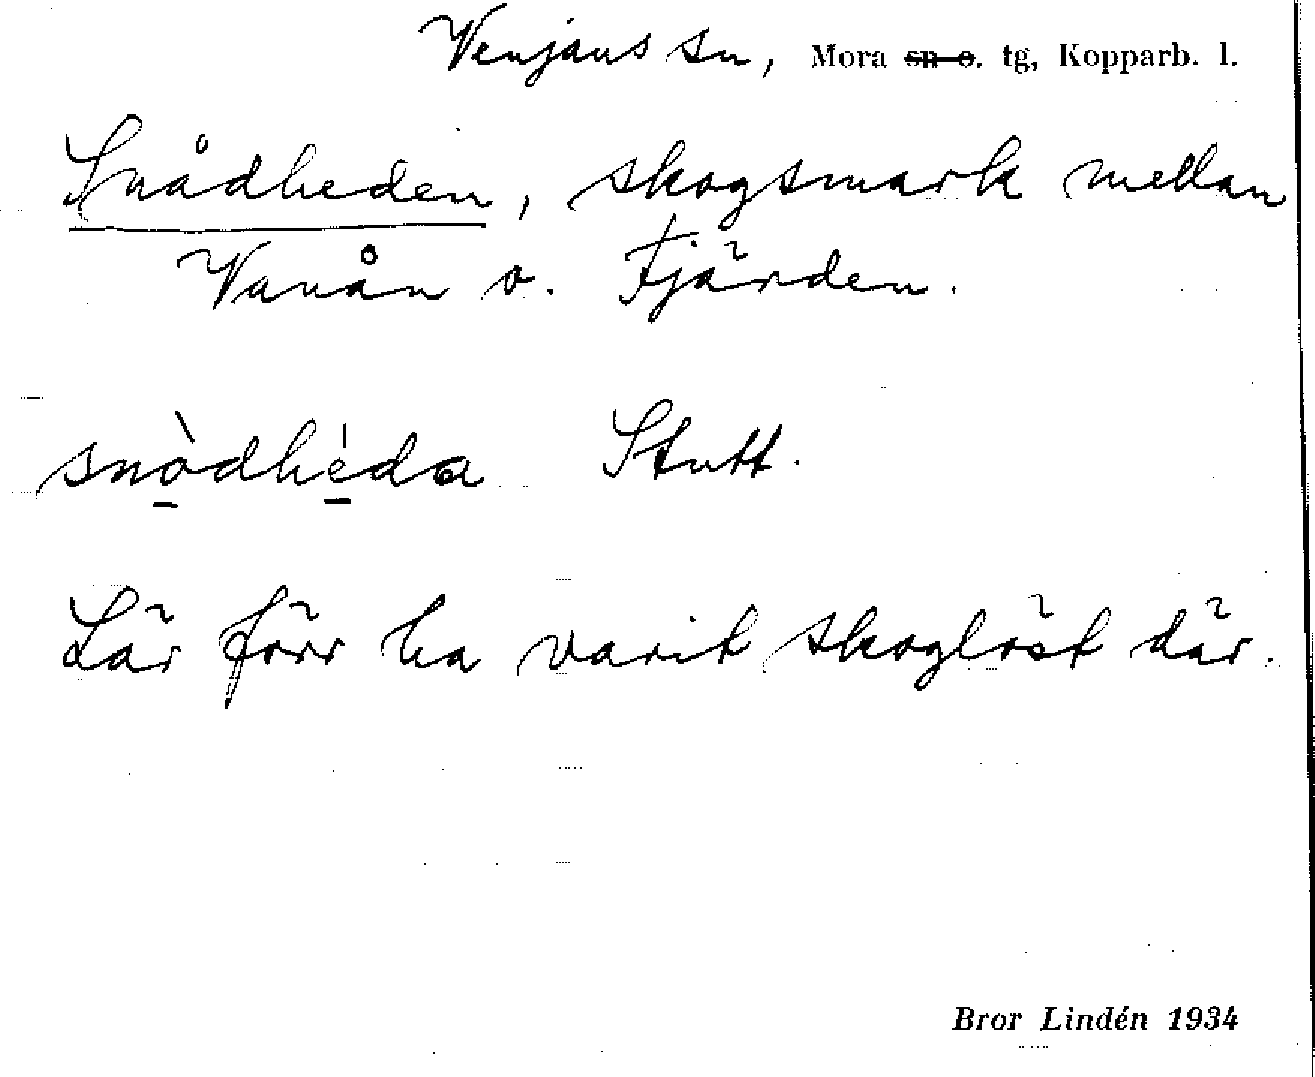 Venjans sn, Mora sn o. tg, Kopparb. l.
Snådheden, skogsmark mellan
Vanån o. Fjärden.
snòdhèda Stutt.
Lär förr ha varit skoglöst där.
Bror Lindén 1934